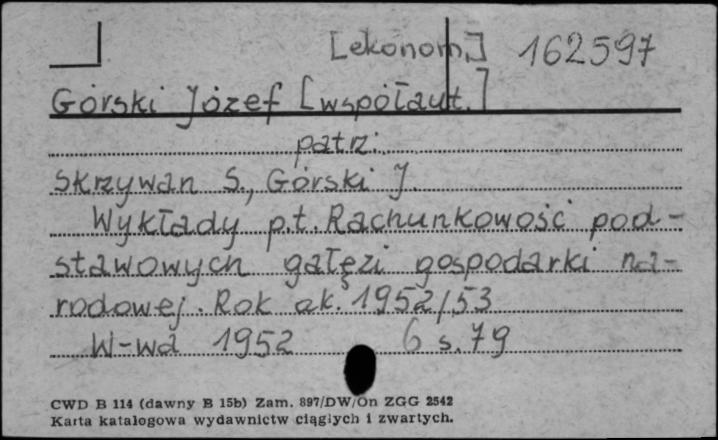 [ekonom.] 162597
Górski Józef [współaut.]
patrz:
Skrzywan S., Górski J.
Wykłady p.t. Rachunkowość pod-
stawowych gałęzi gospodarki na-
rodowej. Rok ak. 1952/53
W-wa 1952 6 s. 79
CWD B 114 (dawny B 15b) Zam. 897/DW/On ZGG 2542
Karta katalogowa wydawnictw ciągłych i zwartych.